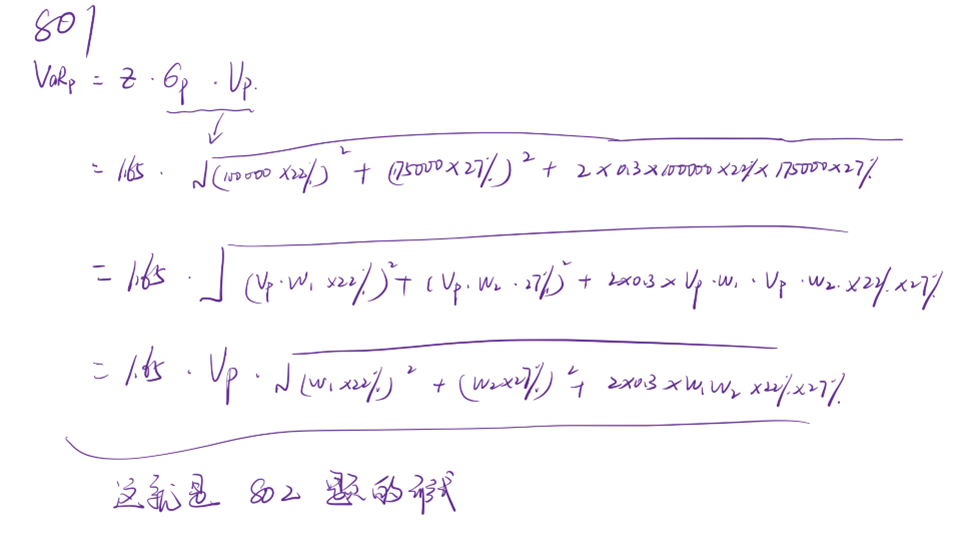 801
VaRp = z · σp · Vp.
= 1.65 · √(100000 ×22%)² + (175000×27%)² + 2×0.3×100000×22%×175000×27%
= 1.65 · √(Vp·W₁ ×22%)² + (Vp·W₂·27%)² + 2×0.3×Vp·W₁·Vp·W₂·×22%×27%
= 1.65 · Vp · √(W₁×22%)² + (W₂×27%)² + 2×0.3×W₁W₂×22%×27%
这就是 802 题的形式